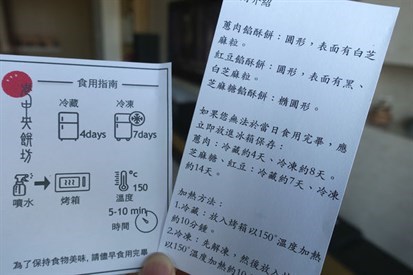 中央餅坊
食用指南
冷藏
冷凍
4days
7days
噴水
烤箱
溫度
150
5-10 min
時間
為了保持食物美味, 請儘早食用完畢
介紹
蔥肉餡酥餅:圓形,表面有白芝
麻粒。
紅豆餡酥餅:圓形,表面有黑、
白芝麻粒。
芝麻糖餡酥餅:橢圓形。
如果您無法於當日食用完畢,應
立即放進冰箱保存:
蔥肉:冷藏約4天、冷凍約8天。
芝麻糖、紅豆:冷藏約7天、冷凍
約14天。
加熱方法:
1.冷藏:放入烤箱以150°溫度加熱
約10分鐘。
2.冷凍:先解凍,然後放入烤
以150°溫度加熱約10